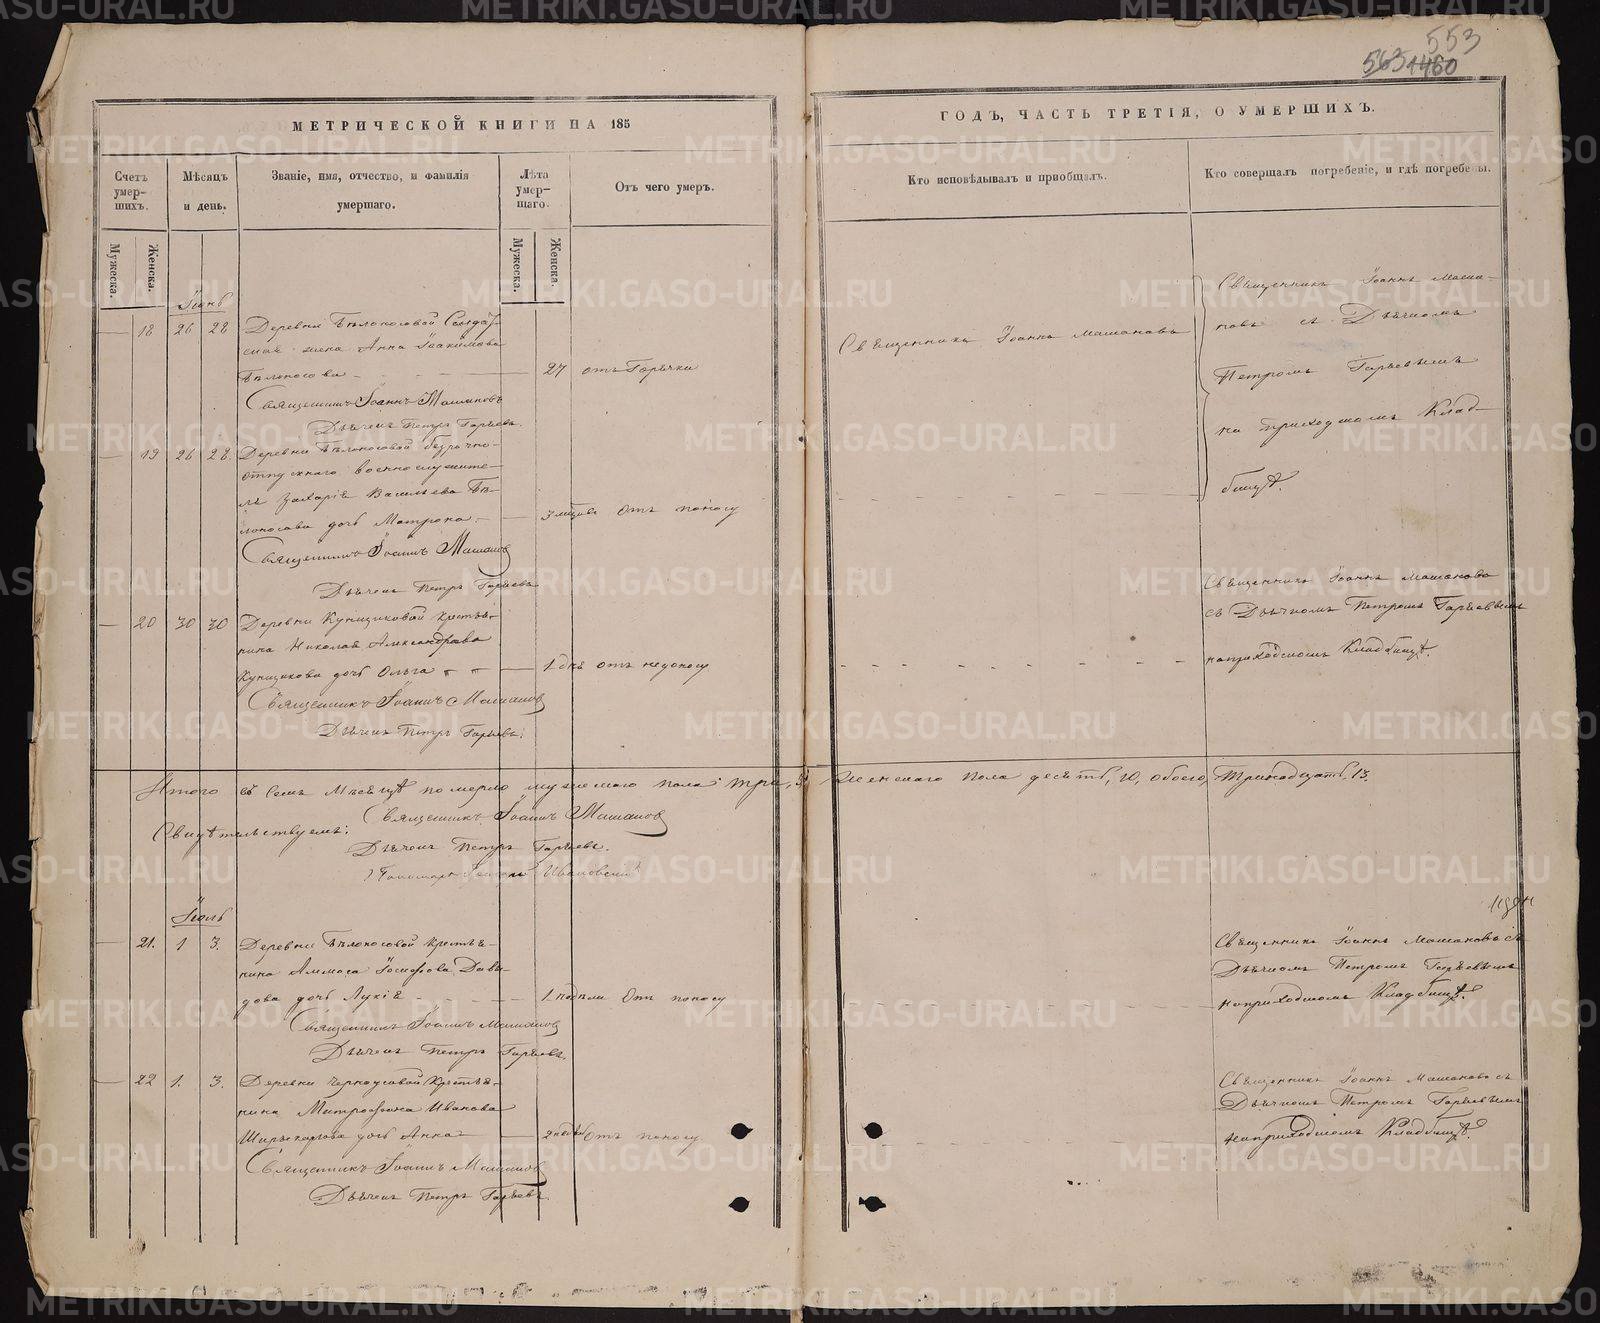 553
563 1460
МЕТРИЧЕСКОЙ КНИГИ НА 185
ГОДЪ, ЧАСТЬ ТРЕТІЯ, О УМЕРШИХЪ.
Счетъ умер-шихъ.
Мѣсяцъ и день.
Званіе, имя, отчество, и фамилія умершаго.
Лѣта умер-шаго.
Отъ чего умеръ.
Кто исповѣдывалъ и пріобщалъ.
Кто совершалъ погребеніе, и гдѣ погребены.
Мужеска.
Женска.
Мужеска.
Женска.
Іюнь
18 26 28 Деревни Бѣлоносовой Солдат-
ская жена Анна Іоакимова
Бѣлоносова 27 отъ Горячки
Священникъ Іоаннъ Машановъ
Священникъ Іоаннъ Маша-
новъ съ Дьячкомъ
Петромъ Гаряевымъ
на приходскомъ Клад-
бищѣ.
Священникъ Іоаннъ Машановъ
Дьячекъ Петръ Гаряевъ.
19 26 28. Деревни Бѣлоносовой безсрочно-
отпускнаго военнослужите-
ля Захарія Васильева Бѣ-
лоносова дочь Матрона 3 мѣсяцовъ Отъ поносу
Священникъ Іоаннъ Машановъ
Дьячекъ Петръ Гаряевъ
20 30 30 Деревни Кунщиковой Крестья-
нина Николая Александрова
Кунщикова дочь Ольга 1 дня отъ недоносу
Священникъ Іоаннъ Машановъ
съ Дьячкомъ Петромъ Гаряевымъ
на приходскомъ Кладбищѣ.
Священникъ Іоаннъ Машановъ
Дьячекъ Петръ Гаряевъ.
Итого въ семъ Мѣсяцѣ померло мужескаго пола три, 3, женскаго пола десять, 10, обоего, тринадцать, 13.
Свидѣтельствуемъ:
Священникъ Іоаннъ Машановъ
Дьячекъ Петръ Гаряевъ.
Пономарь Ивановскій
Іюль
21. 1 3. Деревни Бѣлоносовой Крестья-
нина Аммоса Іосифова Давы-
дова дочь Лукія 1 недѣли Отъ поносу
Священникъ Іоаннъ Машановъ съ
Дьячкомъ Петромъ Гаряевымъ
на приходскомъ Кладбищѣ.
Священникъ Іоаннъ Машановъ
Дьячекъ Петръ Гаряевъ.
22 1. 3. Деревни Черноусовой Крестья-
нина Митрофана Иванова
Ширыкалова дочь Анна 2 недѣль Отъ поносу
Священникъ Іоаннъ Машановъ съ
Дьячкомъ Петромъ Гаряевымъ
на приходскомъ Кладбищѣ.
Священникъ Іоаннъ Машановъ
Дьячекъ Петръ Гаряевъ.
METRIKI.GASO-URAL.RU